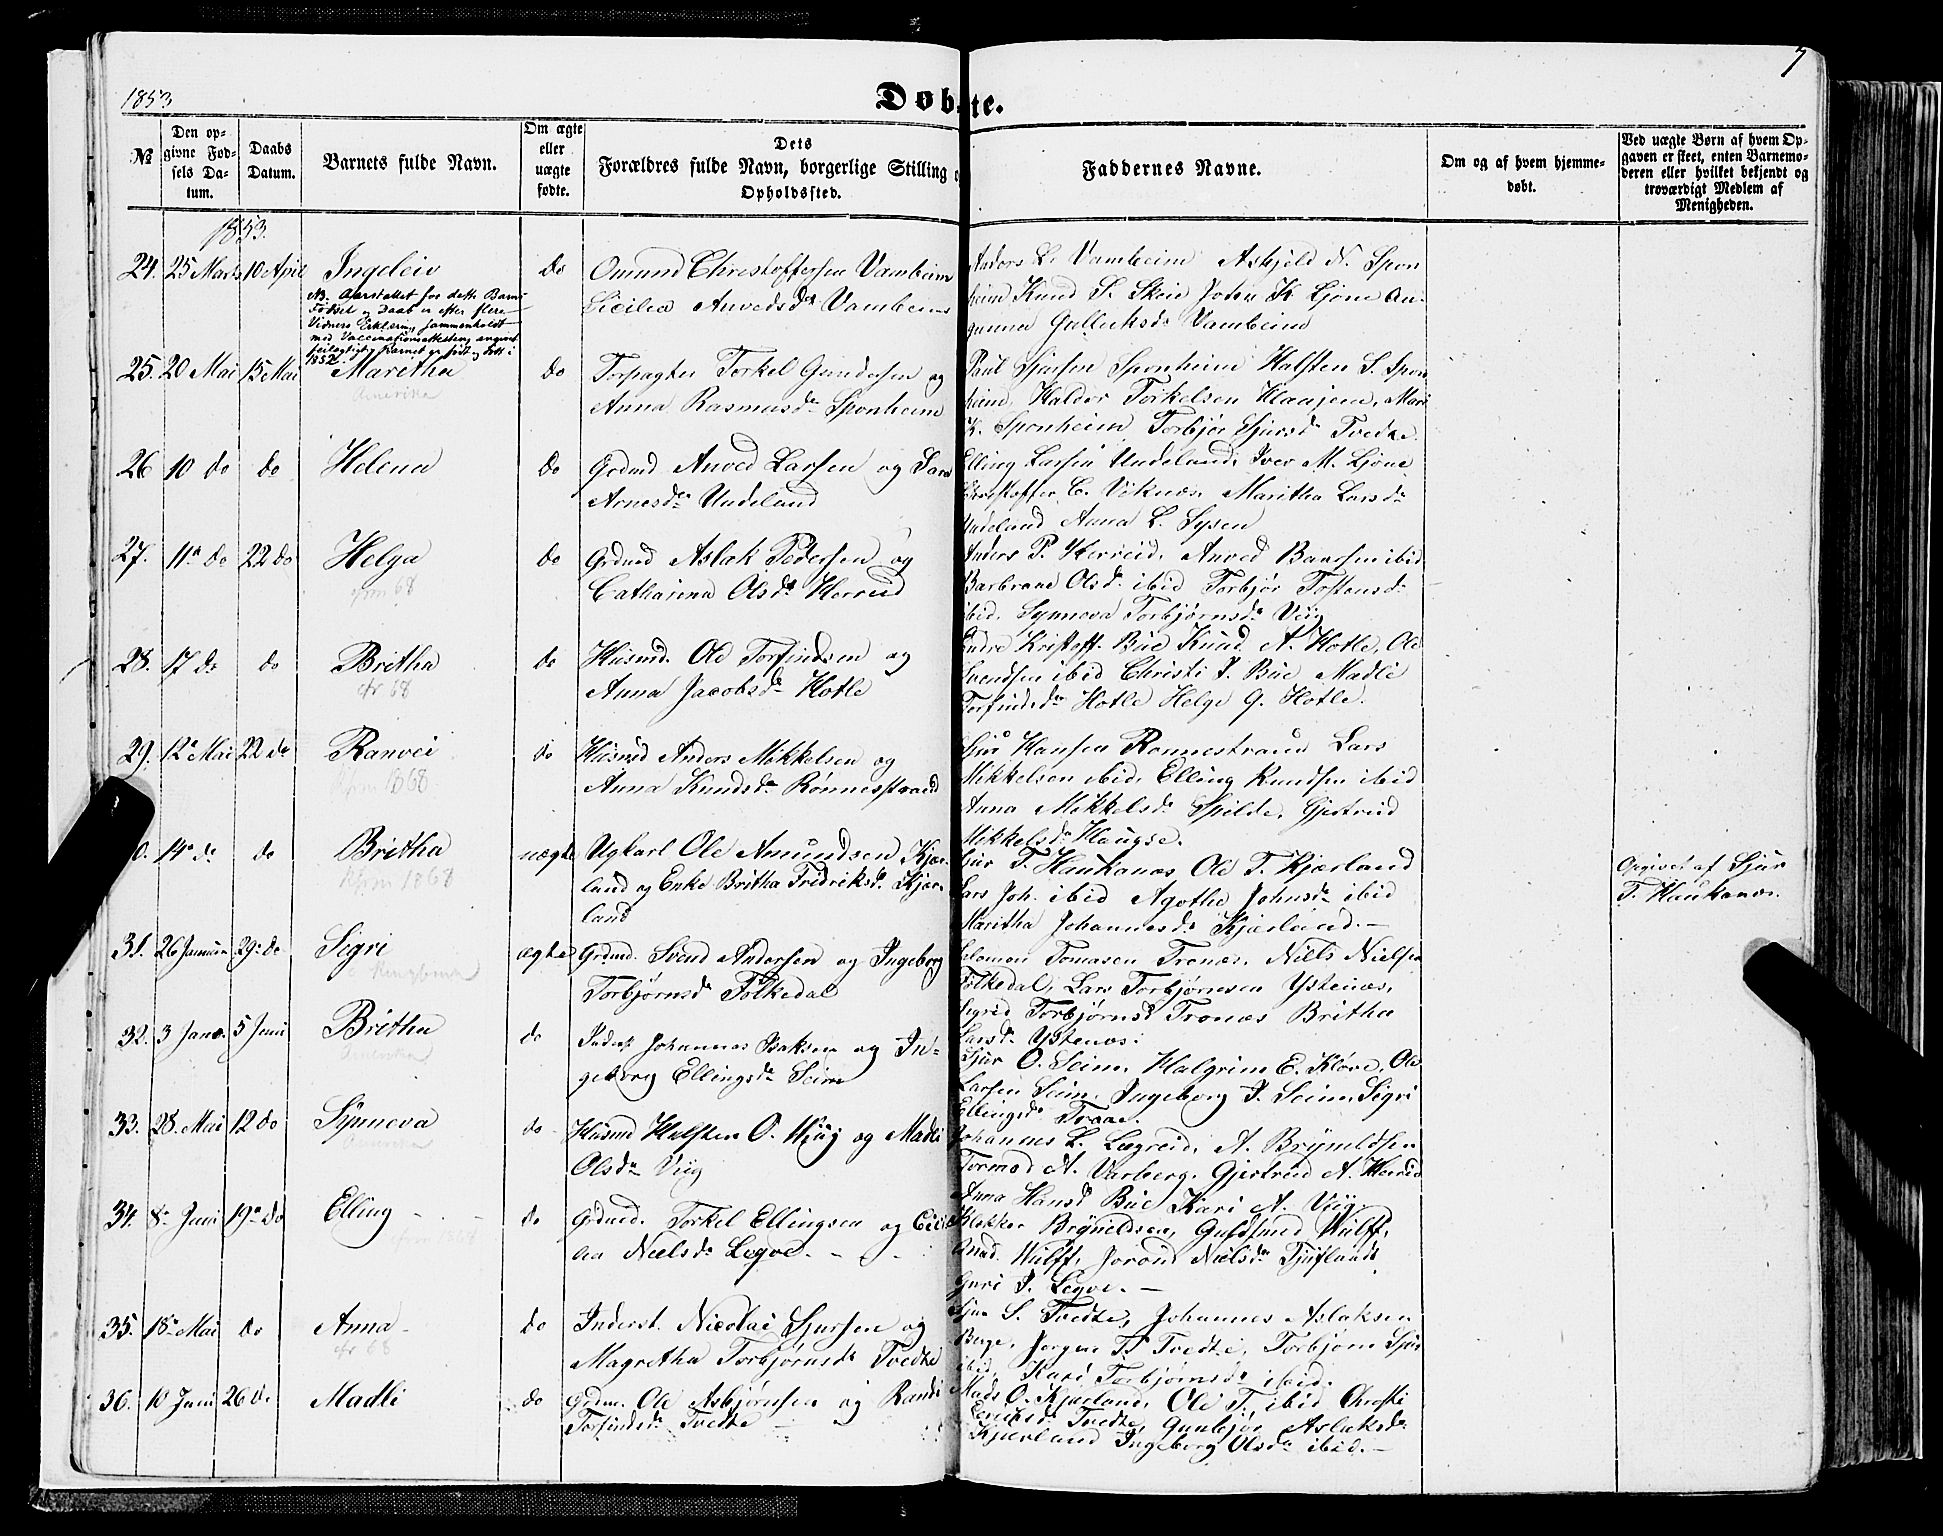 1853
7
Døbte.
№
Den opgivne Fødsels Datum.
Daabs Datum.
Barnets fulde Navn.
Om ægte eller uægte fødte.
Dets Forældres fulde Navn, borgerlige Stilling Opholdssted.
Faddernes Navne.
Om og af hvem hjemmedøbt.
Ved uægte Børn af hvem Opgaven er skeet, enten Barnemoderen eller hvilket bekjendt og troværdigt Medlem af Menigheden.
1853.
24. 25 Marts 10 April Ingeleiv do Omund Christoffersen Vambeim
Sicilia Anvedsdr Vambeim
NB. Aarstallet for dette Barns
Fødsel og Daab er efter flere
Vidners Erklæring sammenholdt
med Vaccinationsattesten angivet
feilagtigt, Barnet er født og døbt i
1852.
Anders L. Vambeim Askjeld N. Spon
heim Knud S. Skeie John K Ljone
Gulleiksdr Vambeim
25. 20 Mai 15 Mai Maritha do Torpagter Torkel Gundersen og
Amerika
Anna Rasmusdr Sponheim
Paul Sjursen Sponheim Halsten S. Spon
heim, Haldor Torkelsen Haajem, Mari
K. Sponheim Torbjør Sjursdr Tvedte.
26 10 do do Helena do Grdmd Anved Larsen og Sara
Arnesdr Undeland
Elling Larsen Undeland, Iver M. Ljone
Christoffer C. Viknæs, Maritha Larsdr
Undeland Anna L. Lysen
27. 11te do 22 do Helga do Grdmd Aslak Pedersen og
cfrm 68
Catharina Olsdr Herreid
Anders P. Herreid, Anved Baarsen ibid
Barbraae Olsdr ibid Torbjør Tostensdr
ibid, Synneva Torbjørnsdr Viig
28. 17 do do Britha do Husmd. Ole Torfindsen og
cfr 68
Anna Jacobsdr Hotle
Endre Kristoff. Bue Knud A. Hotle, Ole
Svendsen ibid Christi J. Bue Madli
Torfindsdr Hotle Helge G. Hotle.
29. 12te Mai 22 do Ranvei do Husmd Anders Mikkelsen og
Kfrm 1868
Anna Knudsdr Rønnestrand
Sjur Hansen Rønnestrand Lars
Mikkelsen ibid, Elling Knudsen ibid
Anna Mikkelsdr Spilde, Gjertrud
Mikkelsdr Haugse.
0. 14de do do Britha uægte Ugkarl Ole Amundsen Kjær-
Kfrm 1868
land og Enke Britha Fredriksdr Kjær-
land
Sjur T. Haukanæs Ole T. Kjærland
Lars Joh. ibid Agotha Johnsdr ibid
Maritha Johannesdr Kjærland. -
Opgivet af Sjur
T. Haukanæs.
31. 26 Januar 29de do Sigri ægte Grdmd. Svend Andersen og Ingeborg
Torbjørnsdr Folkedal
Salomon Tomasen Tronæs, Niels Nielsen
Folkedal, Lars Torbjørnsen Ystenæs,
Sigrid Torbjørnsdr Tronæs Britha
Larsdr Ystenæs.
32. 3 5 Juni Britha do Inderst Johannes Isaksen og In-
Amerika
geborg Ellingsdr Seim
Sjur O. Seim, Halgrim E. Kløve, Ole
Larsen Seim, Ingeborg J. Seim, Sigri
Ellingsdr Traae.
33. 28. Mai 12 do Synneva do Husmd Halsten O. Hjug og Madli
Olsdr Viig
Johannes L. Lægreid, A. Bryneldsen
Tormod A. Varberg, Gjertrud A. Herreid
Anna Hansdr Bue Kari A. Viig
34. 8de Juni 19de do Elling do Grdmd. Torkel Ellingsen og Cici
lia Nielsdr Legve.
Klokker Bryneldsen, Guldsmed Wulff,
Mad. Wulff, Jorond Nielsdr Tjutland
Guri J. Legve. -
35. 18de Mai do Anna do Inderst. Nicolai Sjursen og
cfr 68
Magretha Torbjørnsdr Tvedte
Sjur S. Tvedte, Johannes Aslaksen
Berge, Jørgen T. Tvedte, Torbjørn Sjurs
ibid, Kari Torbjørnsdr ibid.
36. 10 Juni 26 do Madli do Grdmd. Ole Asbjørnsen og Randi
Torfindsdr Tvedte
Mads O. Kjærland, Ole T. ibid Christi
Tvedte, Gunbjør Aslaksdr
Kjærland Ingeborg Olsdr ibid. -